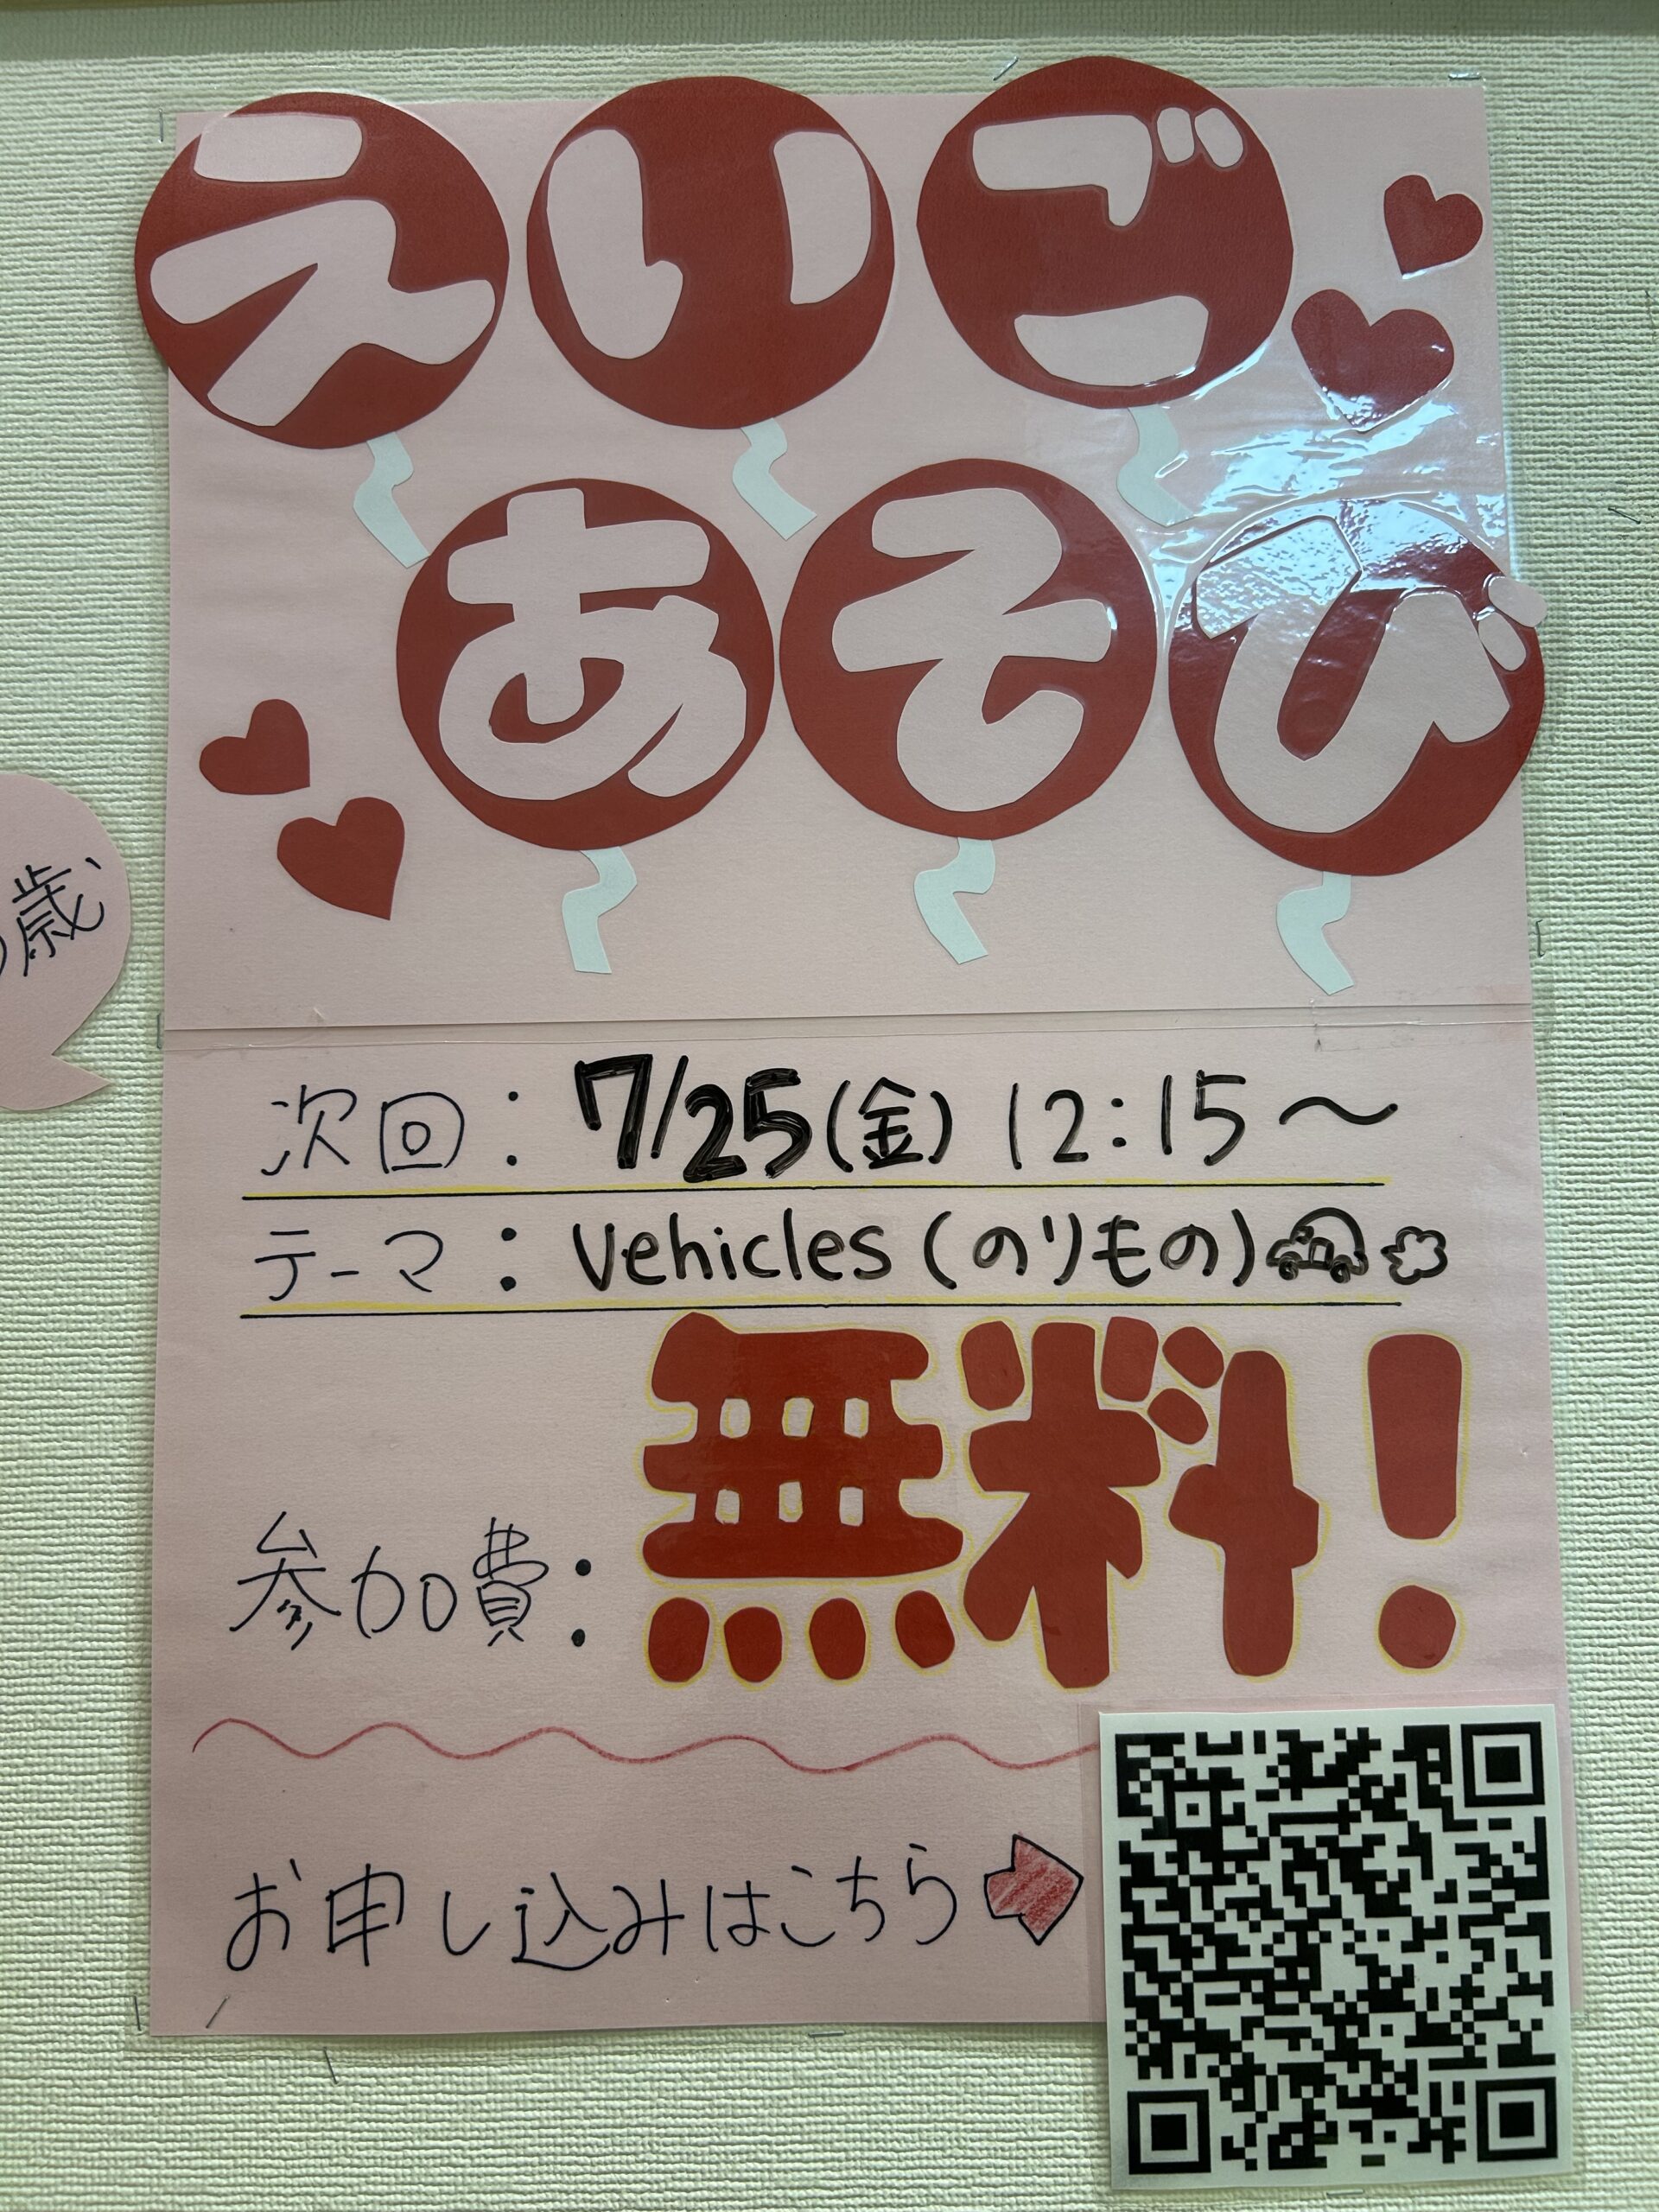 えいご
あそび
歳
次回：7/25(金) 12:15～
テーマ：Vehicles (のりもの)
参加費：無料！
お申し込みはこちら